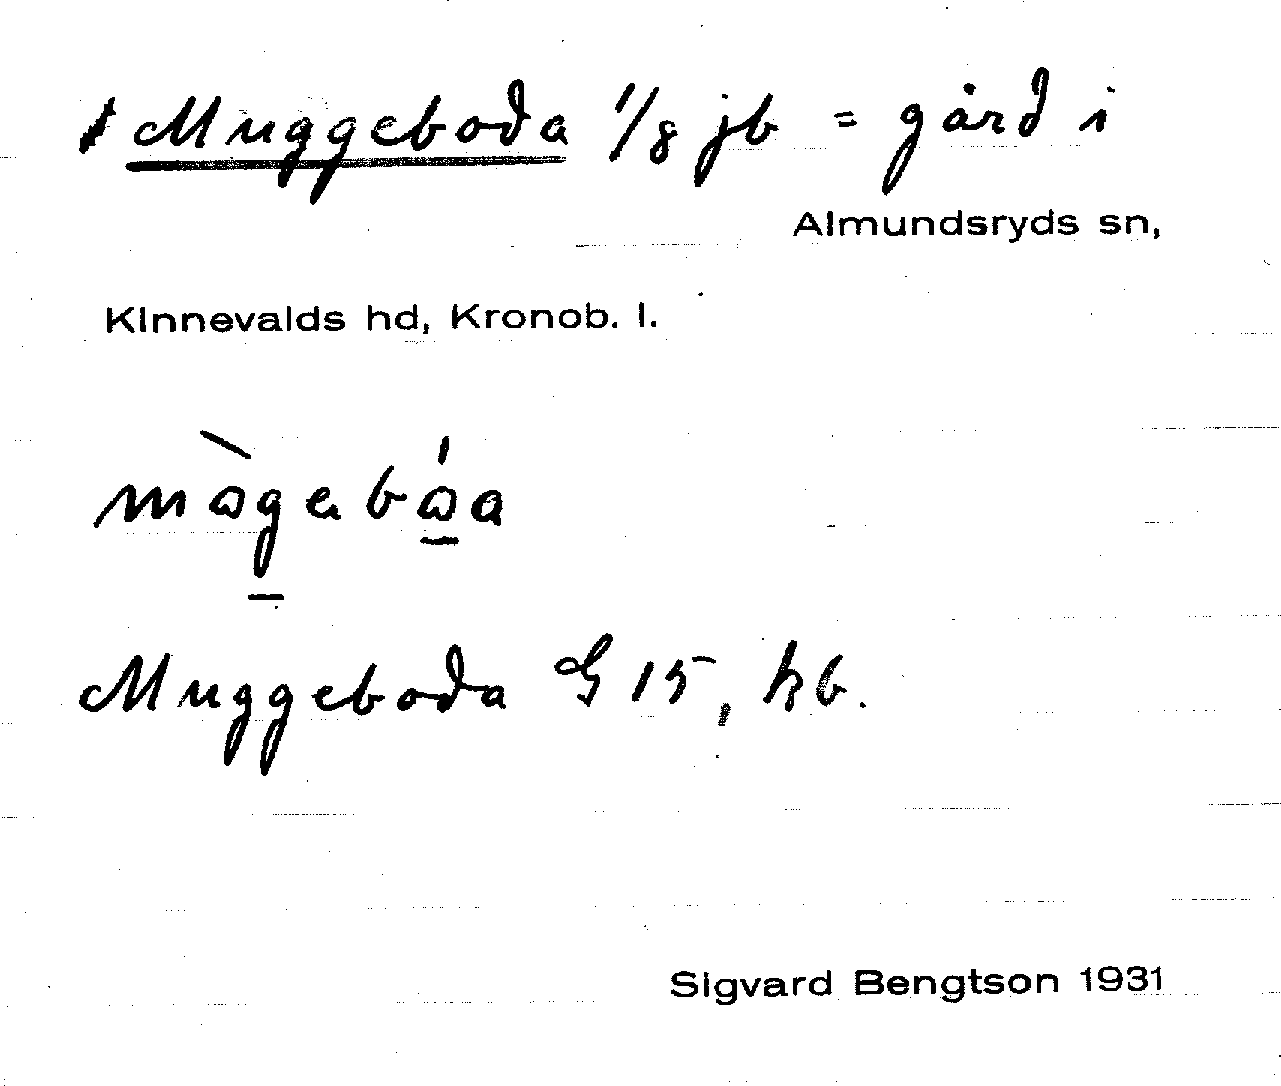 Muggeboda 1/8 jb = gård i
Almundsryds sn,
Kinnevalds hd, Kronob. l.
mògebóa
Muggeboda G 15, hb.
Sigvard Bengtson 1931